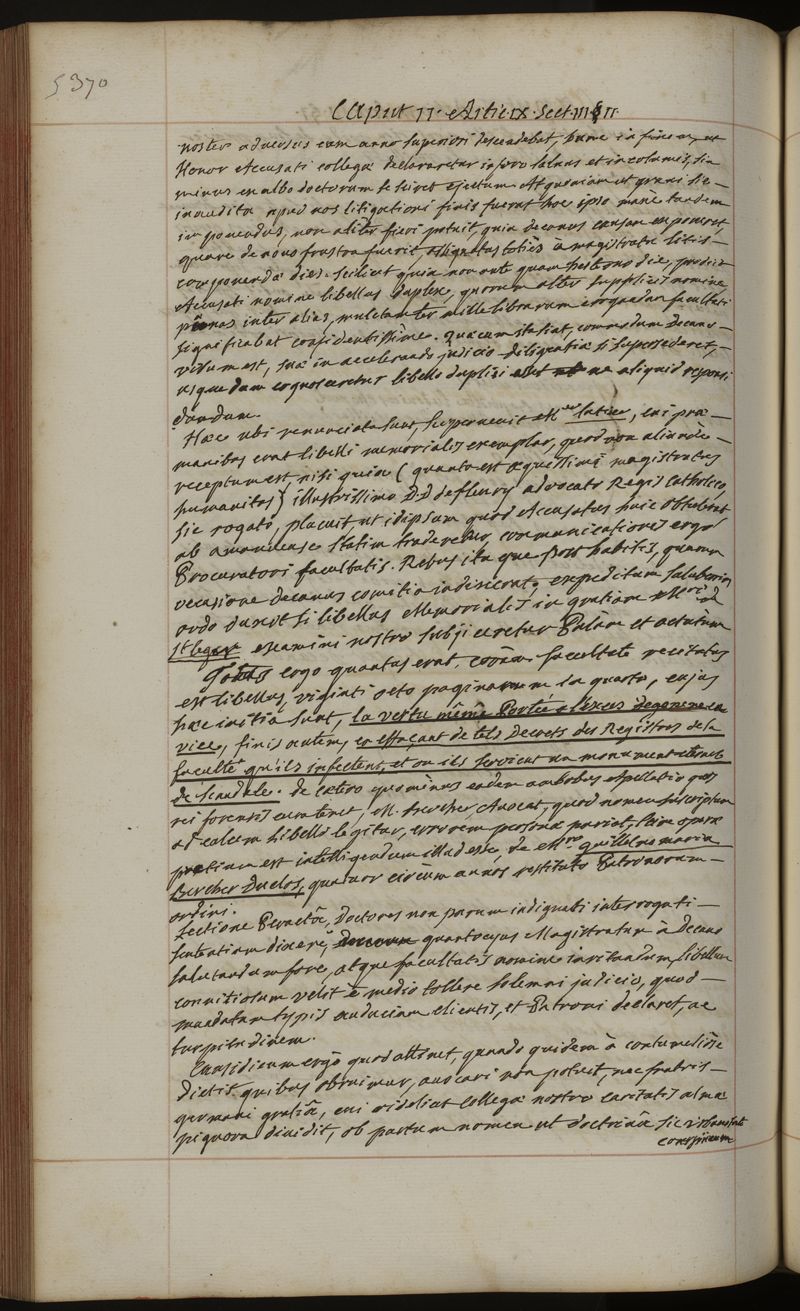 5370
Caput II. Artic. IX. Sect. III § II.
noster adversus eum anno superiori descendebat, hunc in finem, ut
Honor Accusati collegæ declararetur in foro salvus et incolumis, sin
minus ex albo doctorum se sciret ejectum. Atqueniam ut grani sic-
inaudita apud nos litigationi finis fuerat hoc ipso mane tandem
imponendus, non aliter fieri potuit, quin decanus causam exponeret,
quare de novo frustra fuerit assignatus toties a magistratu litis-
componendæ dies. scilicet quia non ante quam hesterno die, prodiit
Accusati nomine libellus duplex, quorum alter supplicis nomine
pœnas inter alias, mulctam ter mille librarum erogandam facultati
significabat confidentissime. quæ cum ita fiat, commodum decano-
visum est, suæ in accelerando judicio diligentiæ si supersederet,-
usque dum cognosceretur libello duplici ne aliquid responsi
dandum.
Hæc ubi renunciata sunt, supervenit Mer latier, cui præ-
manibus erat libelli memorialis exemplar, quod non aliunde-
receptum est, nisi quia (quanta est æquissimi magistratus
humanitas) illustrissimo D.D. defleury advocato Regis catholico,
sic rogato, placuit, ut idipsum quod Accusatus huic obtulerat
ab amanuense statim traderetur, communicationis ergo
Procuratori facultatis. Rebus ita que post habitis, quarum
occasione decanus comitia indixerat, expeditum saluberrim
ordo duxit si libellus Memorialis in gratiam Mri
St leger examini nostro subjiceretur Palam et actutum
Totus ergo quantus erat, coram facultate recitatus
est libellus, viginti octo paginarum in quarto, cujus
hæc initia sunt, la vertu même Portée a l'exces degenere en
vice, finis autem, en effaçant de tels Decrets des Registres de la
faculté qu'ils infectent, et ou ils servient un monument eternel
de scandale. de cætero quominus eadem ambobus Apellatio quos
rei forensis cura tenet, M. Bercher, Avocat, quod nomen suscriptum
ad calcem libelli legitur, errorem personæ pariat, sane operæ
pretium est intelligendum illud esse, de Mro guillelmo maria
Bercher Duclos, quatuor circum annos restituto Patronorum-
ordini.
Lectione Peractâ, Doctores non parum indignati interrogati-
sententiam dixere, quantocyus Magistratum à Decano
salutandum fore, atque facultatis nomine invitandum, libellum
convitiosum velit è medio tollere solemni judicio, quod-
mandatam typis audaciam clientis, et Patroni declaret, ac
turpitudinem.
Causidicum ergo quod attinet, quando quidem à contumeliose
dictis quibus obruimur, avocari non potuit, nec fratris-
germani gratiâ, cui scilicet collegæ nostro caritatis almæ
pignora dividit, ob partum nomen ut doctrinâ sic urbanitate
conspicuum